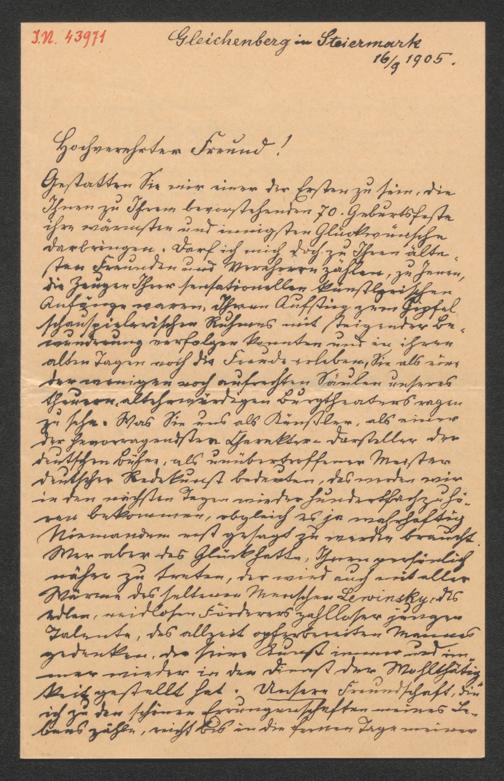 I.N. 43971
Gleichenberg in Steiermark
16/9 1905.
Hochverehrter Freund!
Gestatten Sie mir einer der Ersten zu sein, die
Ihnen zu Ihrem bevorstehenden 70. Geburtsfeste
ihre wärmsten und innigsten Glückwünsche
darbringen. Darf ich mich doch zu Ihren älte-
sten Freunden und Verehrern zählen, zu jenen,
die Zeugen Ihrer sensationellen künstlerischen
Anfänge waren, Ihren Aufstieg zum Gipfel
schauspielerischen Ruhmes mit steigender Be-
wunderung verfolgen konnten und in ihren
alten Tagen noch die Freude erleben, Sie als eine
der wenigen noch aufrechten Säulen unseres
theuern, altehrwürdigen Burgtheaters ragen
zu sehn. Was Sie uns als Künstler, als einer
der hervorragendsten Charakter-Darsteller der
deutschen Bühne, als unübertroffener Meister
deutscher Redekunst bedeuten, das werden wir
in den nächsten Tagen wieder hundertfach zu hö-
ren bekommen, obgleich es ja wahrhaftig
Niemandem erst gesagt zu werden braucht.
Wer aber das Glück hatte, Ihnen persönlich
näher zu treten, der wird auch mit aller
Wärme des seltenen Menschen Lewinsky, des
edlen, neidlosen Förderers zahlloser junger
Talente, des allzeit opferbereiten Mannes
gedenken, der seine Kunst immer und im-
mer wieder in den Dienst der Wohlthätig-
keit gestellt hat. Unsere Freundschaft, die
ich zu den schönen Errungenschaften meines Le-
bens zähle, reicht bis in die fernen Tage meiner